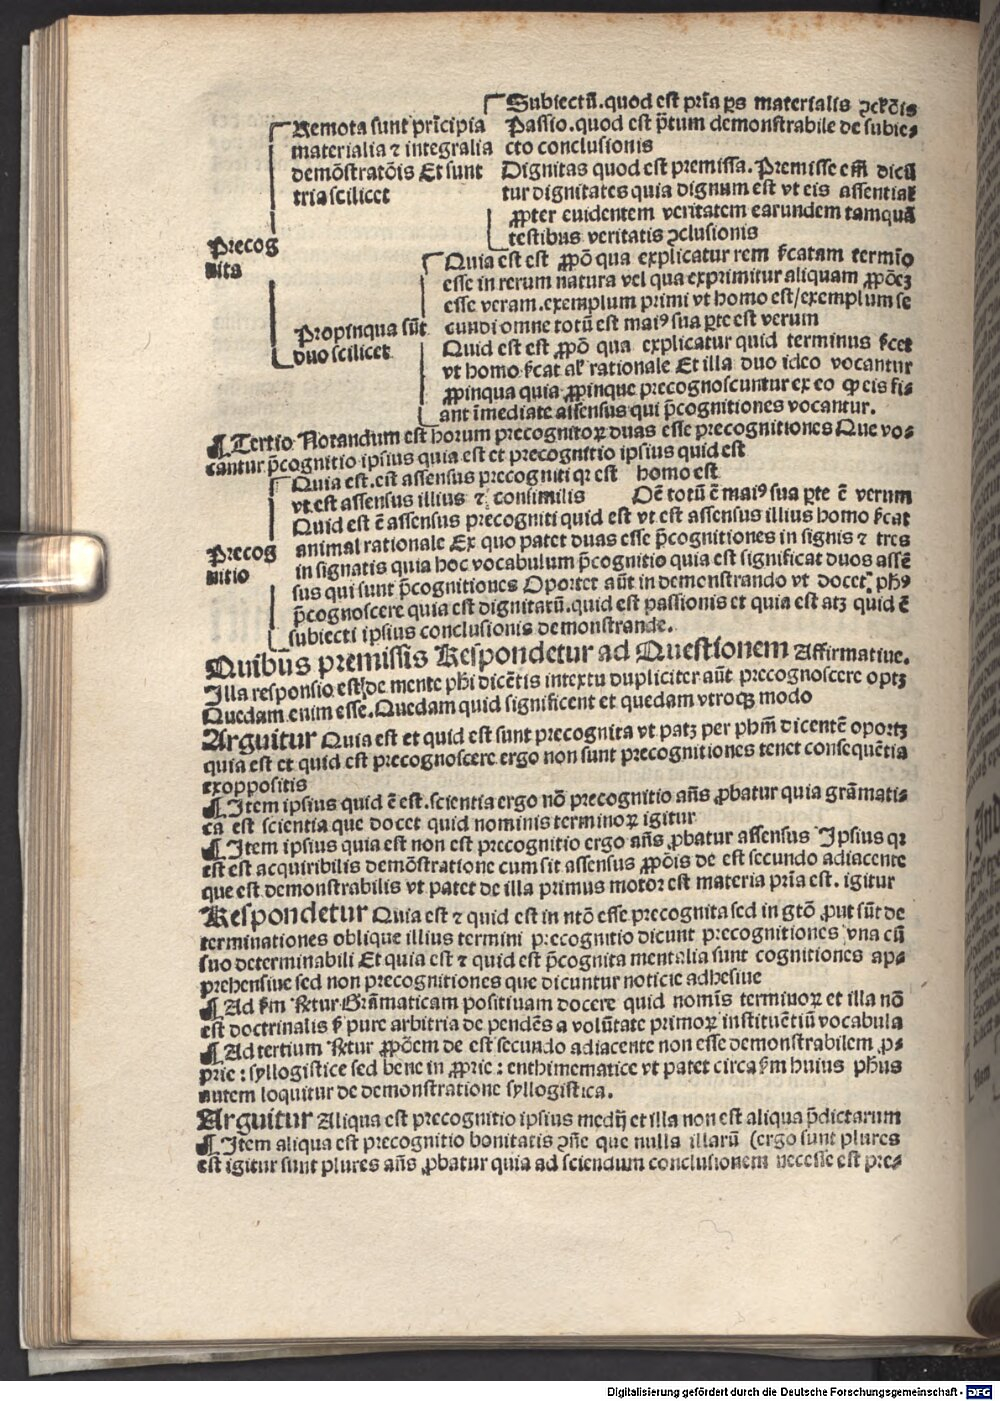 Precog
nita
Remota sunt prīcipia
materialia ⁊ integralia
demōstratōis Et sunt
tria scilicet
Subiectū. quod est prīa ꝑs materialis ꝯcłōis
Passio. quod est p̄tum demonstrabile de subie-
cto conclusionis
Dignitas quod est premissa. Premisse em̄ dicū
tur dignitates quia dignum est vt eis assentiat̄
ꝓpter euidentem veritatem earundem tamquā
testibus veritatis ꝯclusionis
Propinqua sūt
duo scilicet
Quia est est ꝓpō qua explicatur rem s̄catam termīo
esse in rerum natura vel qua exprimitur aliquam ꝓpōeꝫ
esse veram. exemplum primi vt homo est/exemplum se
cundi omne totū est maiꝰ sua ꝑte est verum
Quid est est ꝓpō qua explicatur quid terminus s̄cet
vt homo s̄cat aīal rationale Et illa duo ideo vocantur
ꝓpinqua quia ꝓpinque precognoscuntur ex eo ꝙ eis fi-
ant īmediate assensus qui p̄cognitiones vocantur.
¶ Tertio Notandum est horum precognitoꝝ duas esse precognitiones Que vo-
cantur p̄cognitio ipsius quia est et precognitio ipsius quid est
Precog
nitio
Quia est. est assensus precogniti qꝛ est homo est
vt est assensus illius ⁊ consimilis Oē totū ē maiꝰ sua ꝑte ē verum
Quid est ē assensus precogniti quid est vt est assensus illius homo s̄cat
animal rationale Ex quo patet duas esse p̄cognitiones in signis ⁊ tres
in signatis quia hoc vocabulum p̄cognitio quia est significat duos assē
sus qui sunt p̄cognitiones Oportet aūt in demonstrando vt docet phꝰ
p̄cognoscere quia est dignitatū. quid est passionis et quia est atꝫ quid ē
subiecti ipsius conclusionis demonstrande.
Quibus premissis Respondetur ad Questionem Affirmatiue.
Illa responsio est de mente phi dicētis in textu dupliciter aūt precognoscere optꝫ
Quedam enim esse. Quedam quid significent et quedam vtroqꝫ modo
Arguitur Quia est et quid est sunt precognita vt patꝫ per phm̄ dicentē oportꝫ
quia est et quid est precognoscere ergo non sunt precognitiones tenet consequētia
ex oppositis
¶ Item ipsius quid ē est. scientia ergo nō precognitio an̄s ꝓbatur quia grāmati-
ca est scientia que docet quid nominis terminoꝝ igitur
¶ Item ipsius quia est non est precognitio ergo an̄s ꝓbatur assensus Ipsius qꝛ
est est acquiribilis demōstratione cum sit assensus ꝓpōis de est secundo adiacente
que est demonstrabilis vt patet de illa primus motor est materia prīa est. igitur
Respondetur Quia est ⁊ quid est in ntō esse precognita sed in gtō ꝓut sūt de
terminationes oblique illius termini precognitio dicunt precognitiones vna cū
suo determinabili Et quia est ⁊ quid est p̄cognita mentalia sunt cognitiones ap-
prehensiue sed non precognitiones que dicuntur noticie adhesiue
¶ Ad s̄m R̄etur Grāmaticam positiuam docere quid nomīs terminoꝝ et illa nō
est doctrinalis s̄ pure arbitria de pendēs a volūtate primoꝝ instituētiū vocabula
¶ Ad tertium R̄etur ꝓpōem de est secundo adiacente non esse demonstrabilem ꝓ-
prie : syllogistice sed bene in ꝓprie : enthimematice vt patet circa s̄m huius phūs
autem loquitur de demonstratione syllogistica.
Arguitur Aliqua est precognitio ipsius medij et illa non est aliqua p̄dictarum
¶ Item aliqua est precognitio bonitatis ꝯn̄e que nulla illarū (ergo sunt plures
est igitur sunt plures an̄s ꝓbatur quia ad sciendum conclusionem necesse est pre-
Digitalisierung gefördert durch die Deutsche Forschungsgemeinschaft - DFG